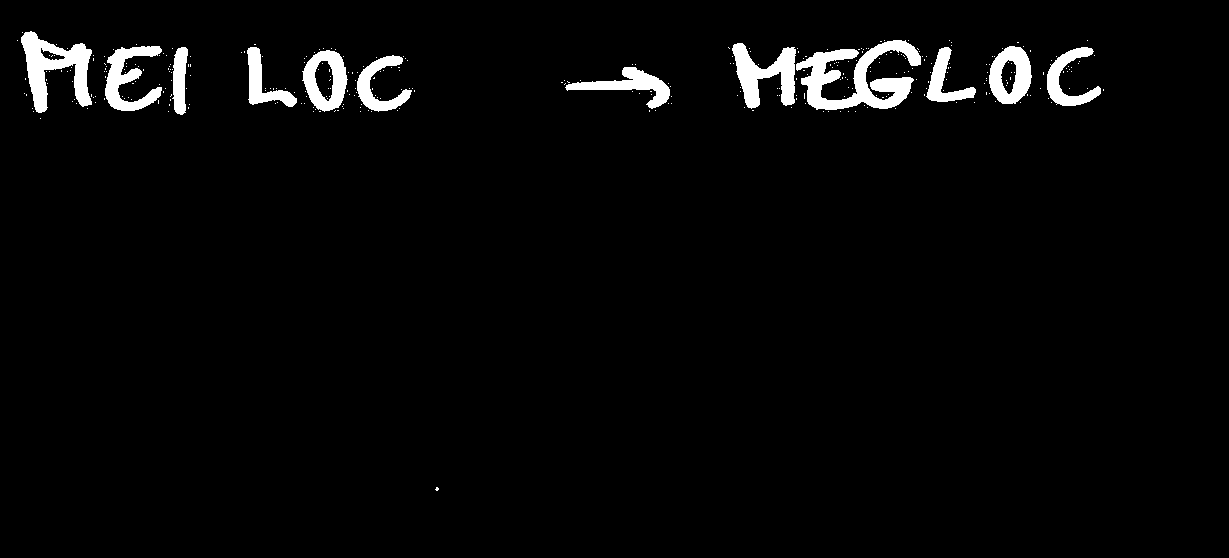 MEI LOC → MEGLOC